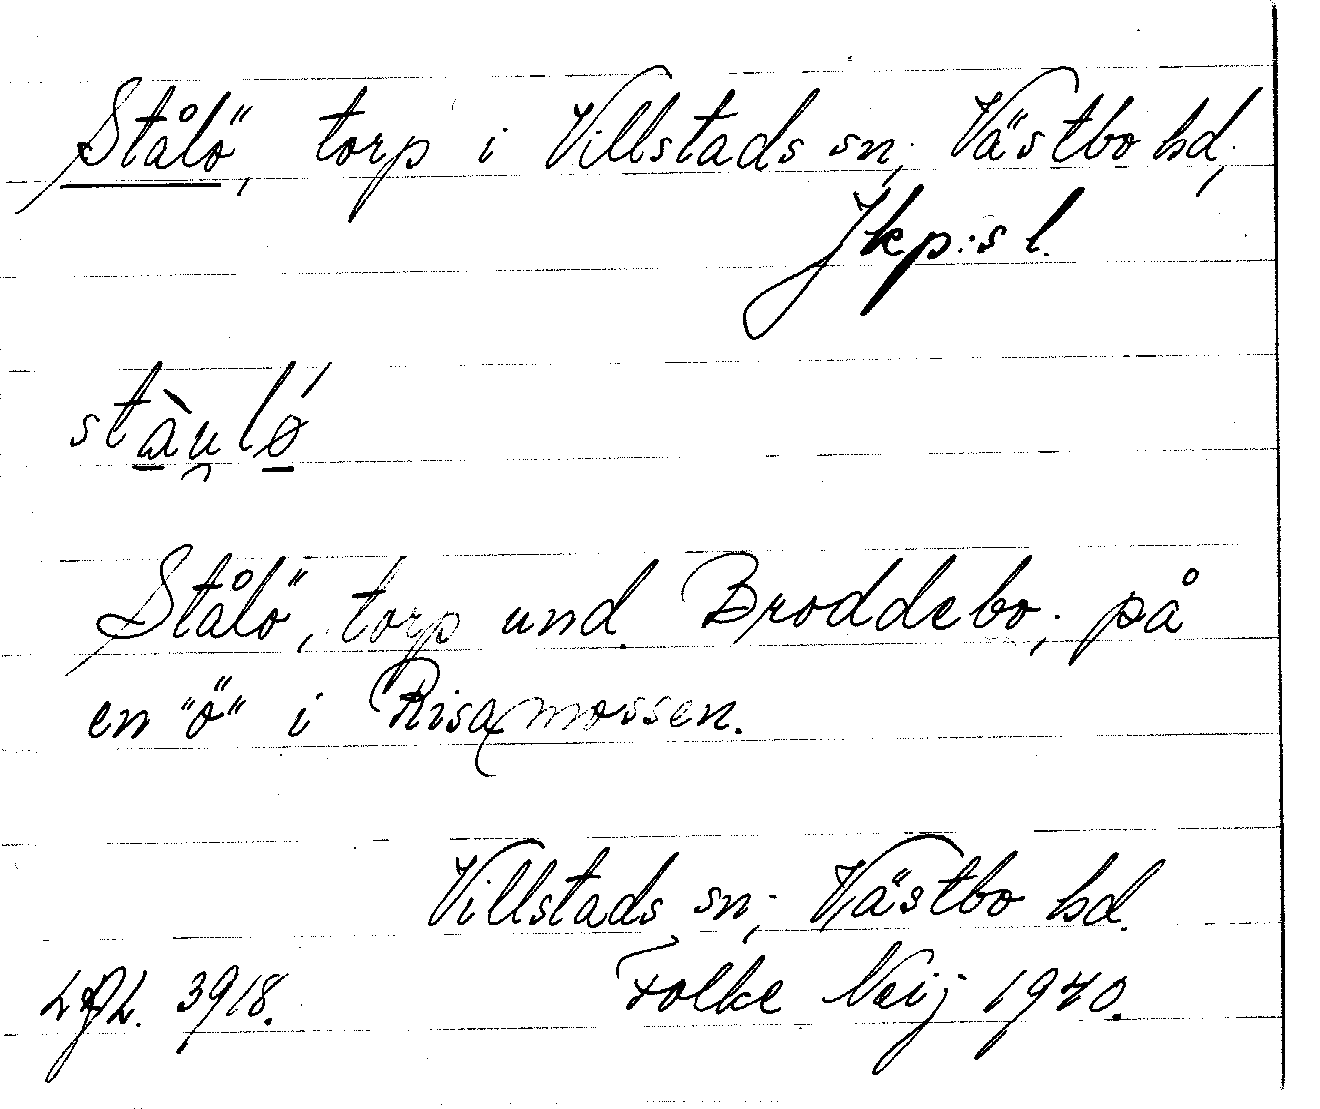 Stålö, torp i Villstads sn; Västbo hd;
Jkp:s l.
stàu̯lǿ
Stålö, torp und. Broddebo; på
en "ö" i Risamossen.
Villstads sn; Västbo hd.
3918. Folke Neij 1940.